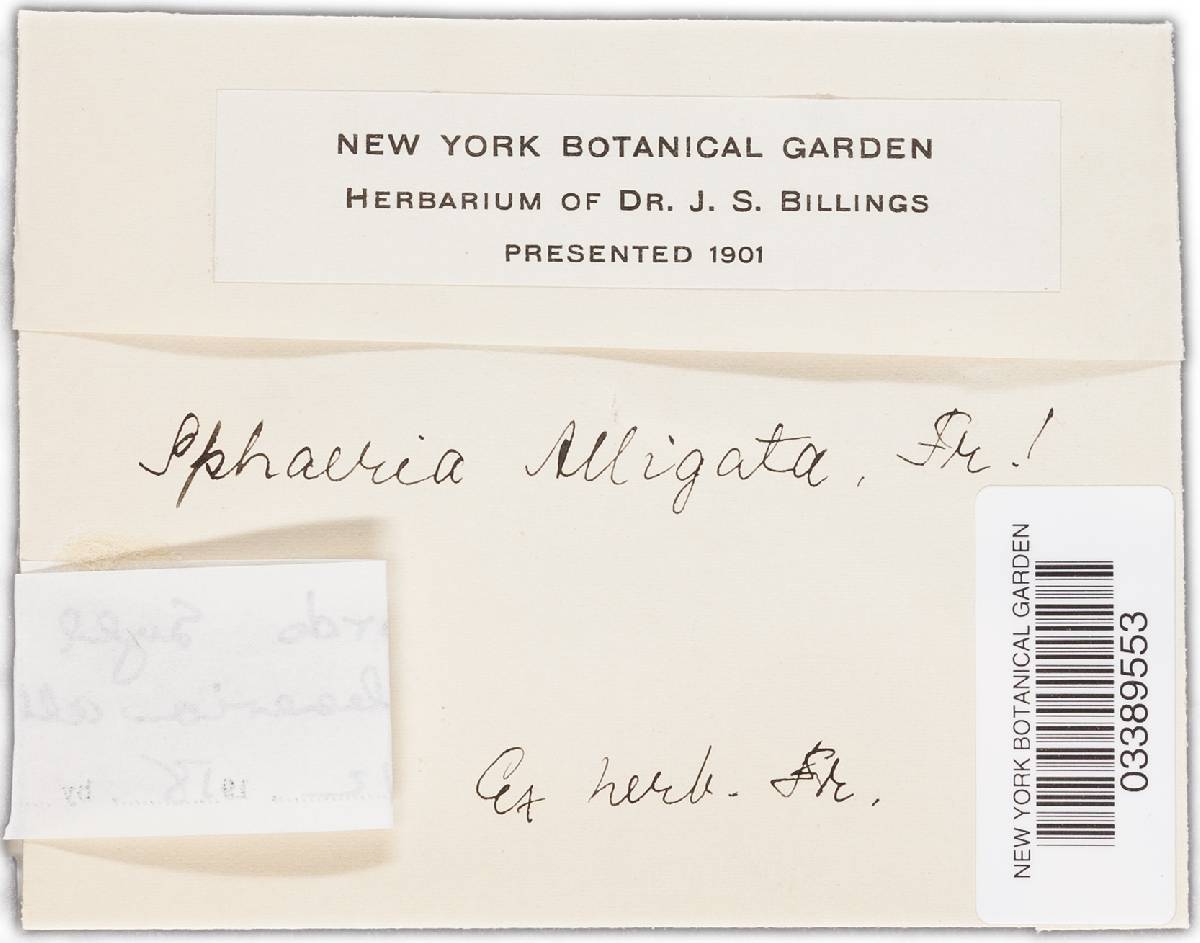 NEW YORK BOTANICAL GARDEN
HERBARIUM OF DR. J. S. BILLINGS
PRESENTED 1901
Sphaeria Alligata, Fr.!
Ex herb. Fr.
NEW YORK BOTANICAL GARDEN
03389553
19
by